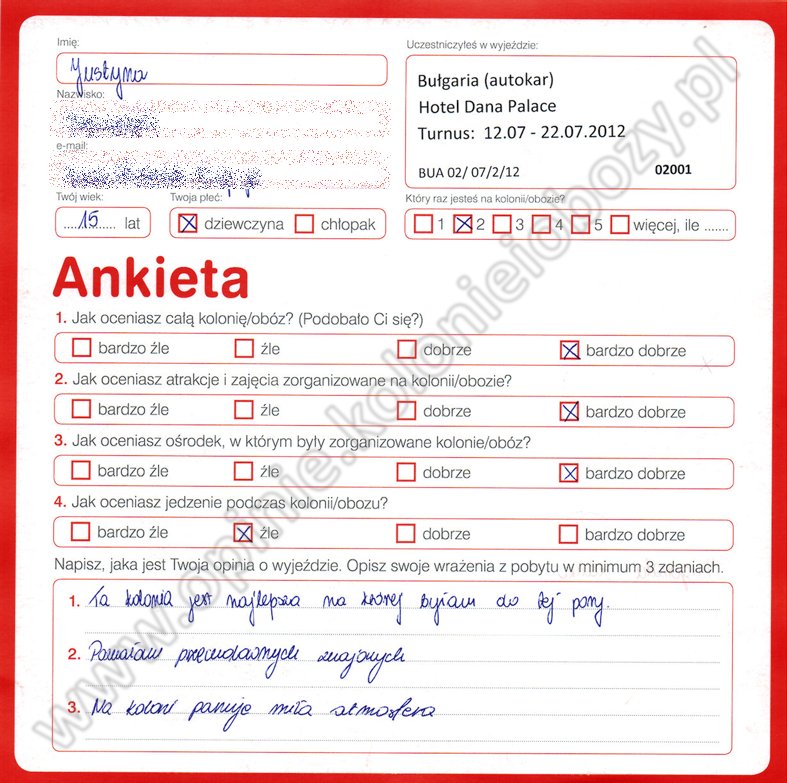 Imię:
Justyna
Nazwisko:
e-mail:
Twój wiek:
....15..... lat
Twoja płeć:
dziewczyna chłopak
Uczestniczyłeś w wyjeździe:
Bułgaria (autokar)
Hotel Dana Palace
Turnus: 12.07 - 22.07.2012
BUA 02/ 07/2/12 02001
Który raz jesteś na kolonii/obozie?
1 2 3 4 5 więcej, ile .......
Ankieta
1. Jak oceniasz całą kolonię/obóz? (Podobało Ci się?)
bardzo źle źle dobrze bardzo dobrze
2. Jak oceniasz atrakcje i zajęcia zorganizowane na kolonii/obozie?
bardzo źle źle dobrze bardzo dobrze
3. Jak oceniasz ośrodek, w którym były zorganizowane kolonie/obóz?
bardzo źle źle dobrze bardzo dobrze
4. Jak oceniasz jedzenie podczas kolonii/obozu?
bardzo źle źle dobrze bardzo dobrze
Napisz, jaka jest Twoja opinia o wyjeździe. Opisz swoje wrażenia z pobytu w minimum 3 zdaniach.
1. Ta kolonia jest najlepsza na której byłam do tej pory.
2. Poznałam przecudownych znajomych
3. Na koloni panuje miła atmosfera
www.opinie.kolonieiobozy.pl